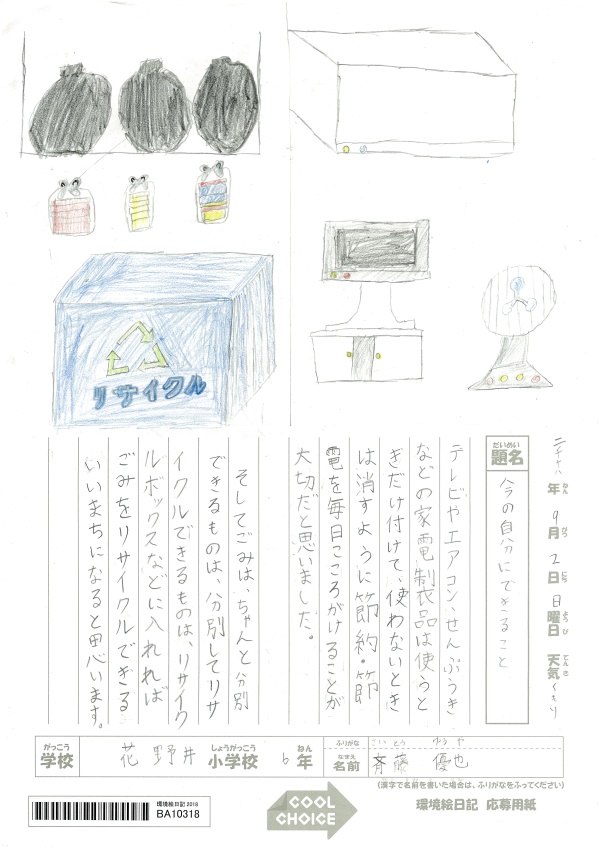 リサイクル
二千十八年 9月 2日 日曜日 天気 くもり
ねん がつ にち ようび てんき
だいめい
題名
今の自分にできること
テレビやエアコン、せんぷうき
などの家電制衣品は使うと
きだけ付けて、使わないとき
は消すように節約・節
電を毎日こころがけることが
大切だと思いました。
そしてごみは、ちゃんと分別
できるものは、分別してリサ
イクルできるものは、リサイク
ルボックスなどに入れれば
ごみをリサイクルできる
いいまちになると思います。
がっこう しょうがっこう ねん
学校 花野井 小学校 6年
ふりがな さいとう ゆうや
なまえ
名前 斉藤 優也
(漢字で名前を書いた場合は、ふりがなをふってください)
環境絵日記2018
BA10318
COOL
CHOICE
環境絵日記 応募用紙